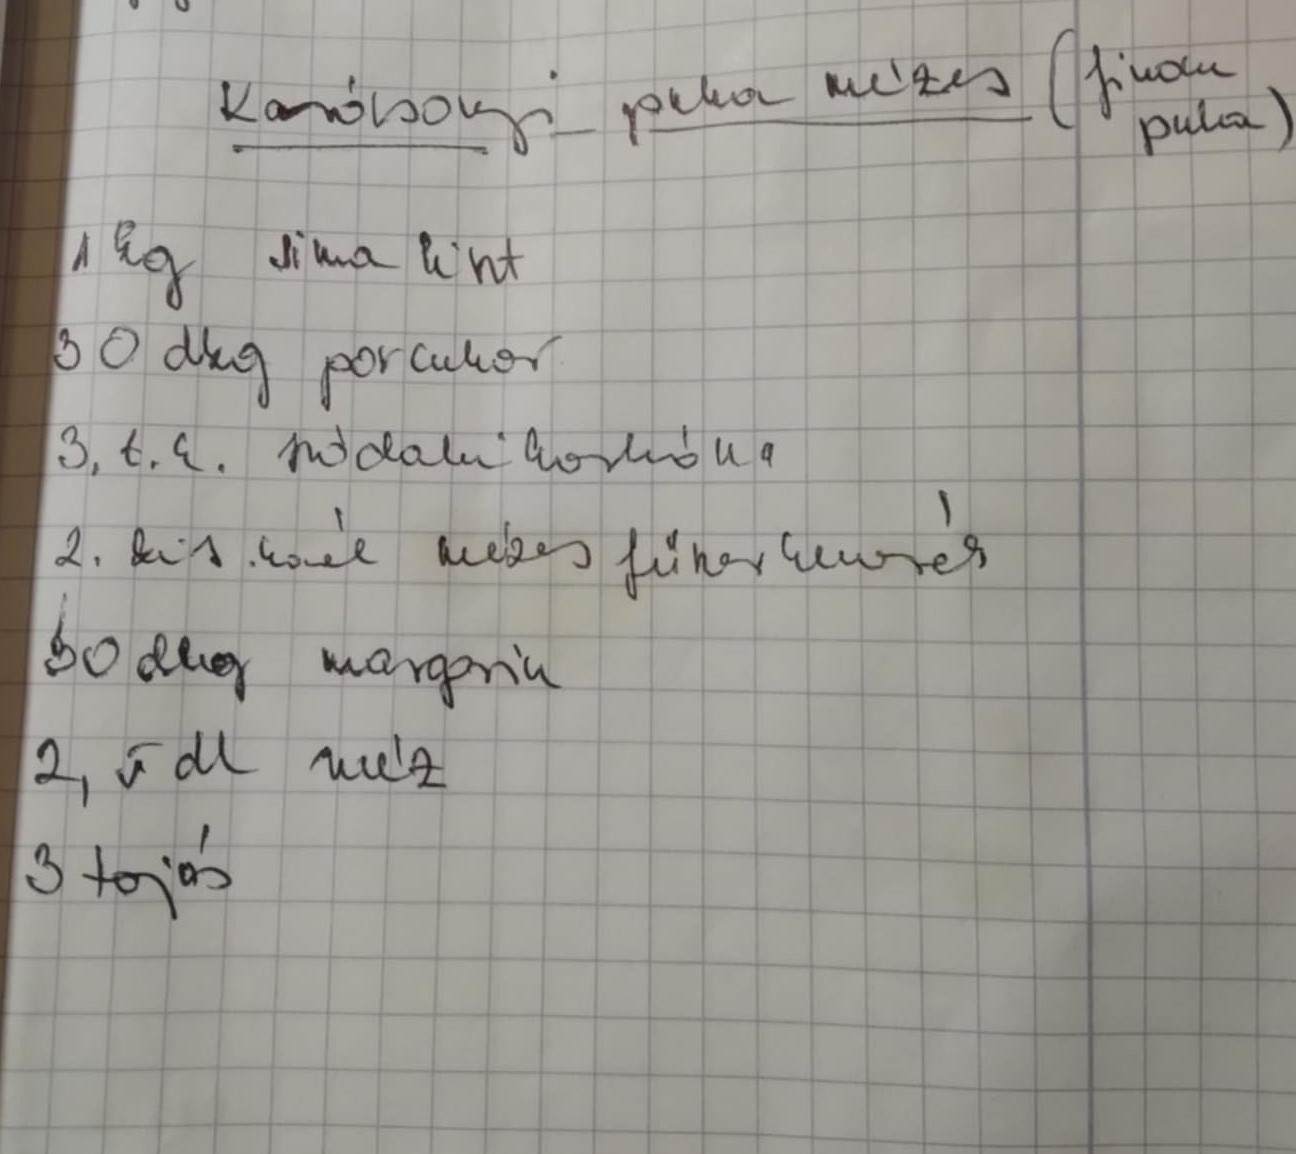 Karácsonyi puha mézes (finom
puha)
1 kg sima liszt
30 dkg porcukor
3, t. k. szódabikarbóna
2. kis kanál mézes fűszerkeverék
30 dkg margarin
2,5 dl méz
3 tojás